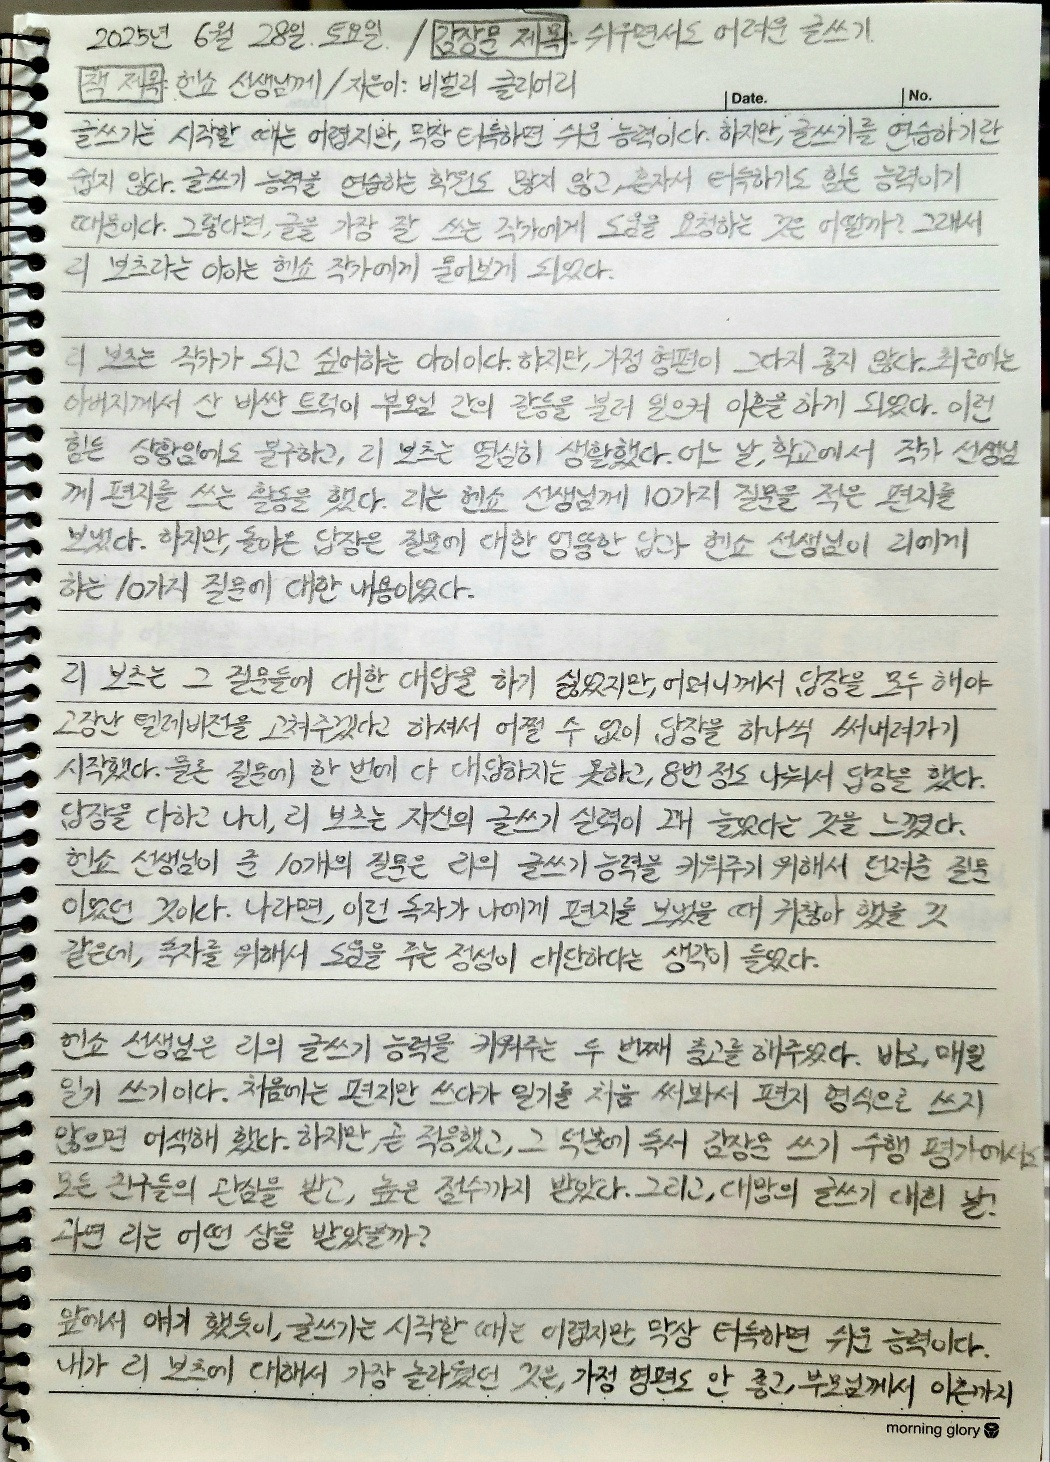 2025년 6월 28일. 토요일. / 감상문 제목: 쉬우면서도 어려운 글쓰기.
책 제목: 헨쇼 선생님께 / 지은이: 비벌리 클리어리
Date. No.
글쓰기는 시작할 때는 어렵지만, 막상 터득하면 쉬운 능력이다. 하지만, 글쓰기를 연습하기란
쉽지 않다. 글쓰기 능력을 연습하는 학원도 많지 않고, 혼자서 터득하기도 힘든 능력이기
때문이다. 그렇다면, 글을 가장 잘 쓰는 작가에게 도움을 요청하는 것은 어떨까? 그래서
리 보츠라는 아이는 헨쇼 작가에게 물어보게 되었다.
리 보츠는 작가가 되고 싶어하는 아이이다. 하지만, 가정 형편이 그다지 좋지 않다. 최근에는
아버지께서 산 비싼 트럭이 부모님 간의 갈등을 불러 일으켜 이혼을 하게 되었다. 이런
힘든 상황임에도 불구하고, 리 보츠는 열심히 생활했다. 어느 날, 학교에서 작가 선생님
께 편지를 쓰는 활동을 했다. 리는 헨쇼 선생님께 10가지 질문을 적은 편지를
보냈다. 하지만, 돌아온 답장은 질문에 대한 엉뚱한 답과 헨쇼 선생님이 리에게
하는 10가지 질문에 대한 내용이었다.
리 보츠는 그 질문들에 대한 대답을 하기 싫었지만, 어머니께서 답장을 모두 해야
고장난 텔레비전을 고쳐주겠다고 하셔서 어쩔 수 없이 답장을 하나씩 써내려가기
시작했다. 물론 질문에 한 번에 다 대답하지는 못하고, 8번 정도 나눠서 답장을 했다.
답장을 다하고 나니, 리 보츠는 자신의 글쓰기 실력이 꽤 늘었다는 것을 느꼈다.
헨쇼 선생님이 준 10개의 질문은 리의 글쓰기 능력을 키워주기 위해서 던져준 질문
이었던 것이다. 나라면, 이런 독자가 나에게 편지를 보냈을 때 귀찮아 했을 것
같은데, 독자를 위해서 도움을 주는 정성이 대단하다는 생각이 들었다.
헨쇼 선생님은 리의 글쓰기 능력을 키워주는 두 번째 충고를 해주었다. 바로, 매일
일기 쓰기이다. 처음에는 편지만 쓰다가 일기를 처음 써봐서 편지 형식으로 쓰지
않으면 어색해 했다. 하지만, 곧 적응했고, 그 덕분에 독서 감상문 쓰기 수행 평가에서도
모든 친구들의 관심을 받고, 높은 점수까지 받았다. 그리고, 대망의 글쓰기 대회 날!
과연 리는 어떤 상을 받았을까?
앞에서 얘기 했듯이, 글쓰기는 시작할 때는 어렵지만, 막상 터득하면 쉬운 능력이다.
내가 리 보츠에 대해서 가장 놀라웠던 것은, 가정 형편도 안 좋고, 부모님께서 이혼까지
morning glory